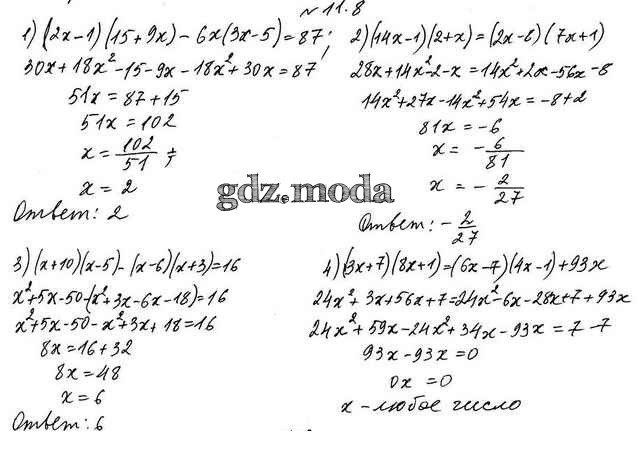 № 11.8
1) (2x-1)(15+9x)-6x(3x-5)=87;
30x+18x²-15-9x-18x²+30x=87
51x=87+15
51x=102
x=102/51
x=2
Ответ: 2
2) (14x-1)(2+x)=(2x-8)(7x+1)
28x+14x²-2-x=14x²+2x-56x-8
14x²+27x-14x²+54x=-8+2
81x=-6
x=-6/81
x=-2/27
Ответ: -2/27
gdz.moda
3) (x+10)(x-5)-(x-6)(x+3)=16
x²+5x-50-(x²+3x-6x-18)=16
x²+5x-50-x²+3x+18=16
8x=16+32
8x=48
x=6
Ответ: 6
4) (3x+7)(8x+1)=(6x-7)(4x-1)+93x
24x²+3x+56x+7=24x²-6x-28x+7+93x
24x²+59x-24x²+34x-93x=7-7
93x-93x=0
0x=0
x-любое число